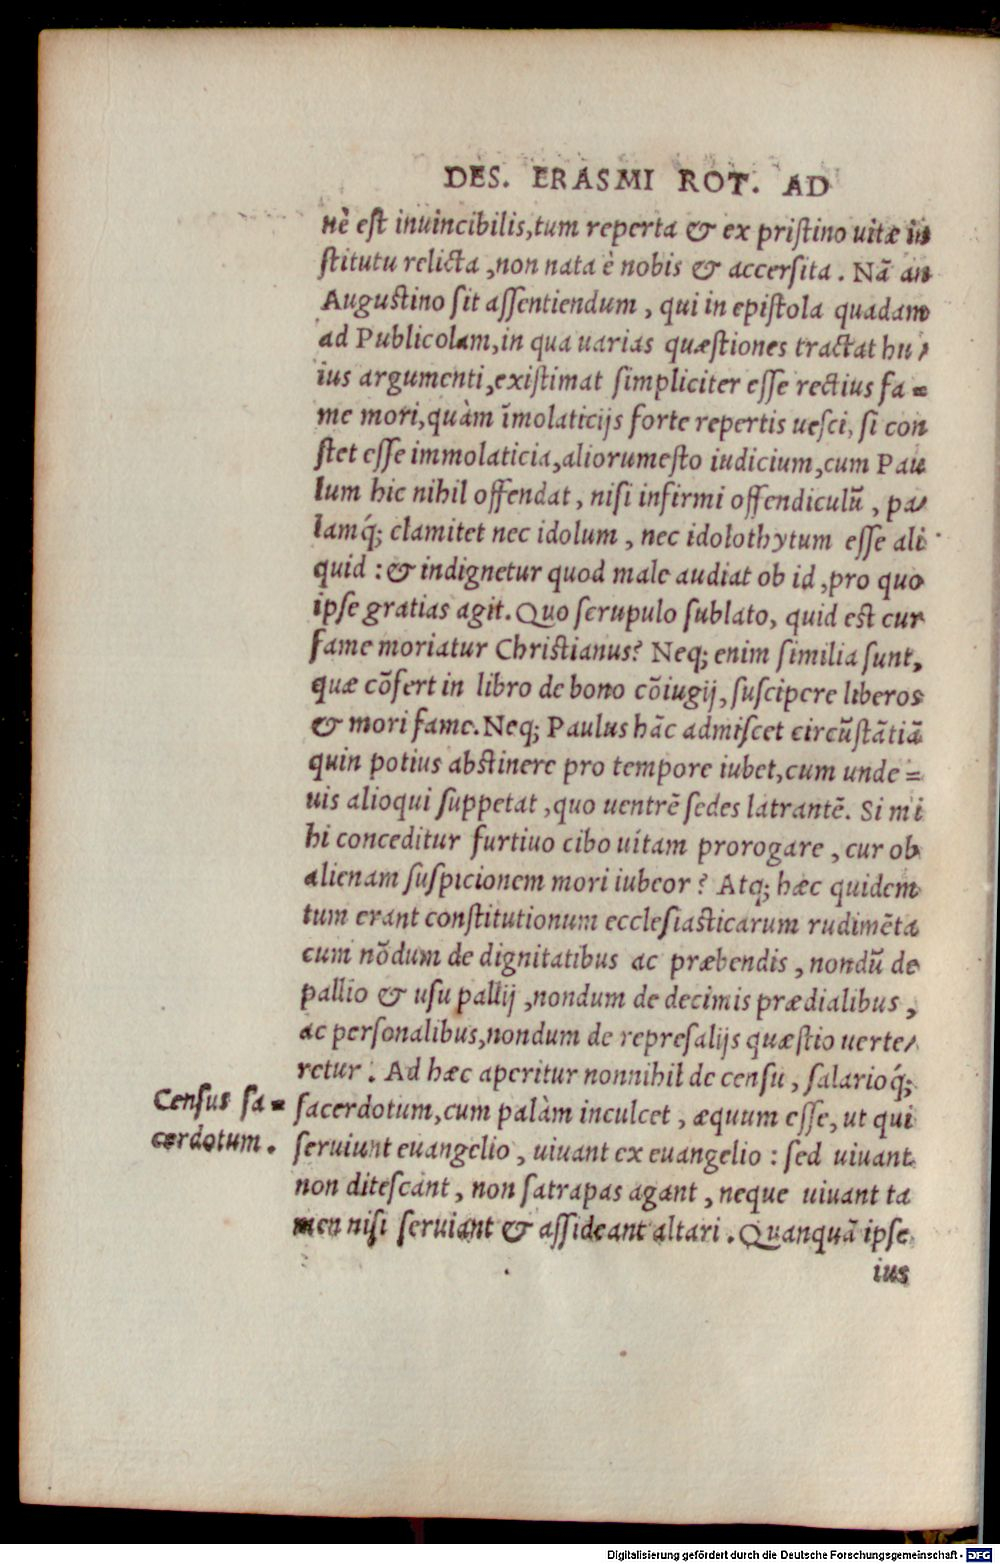 DES. ERASMI ROT. AD
nè est inuincibilis,tum reperta & ex pristino uitæ in
stitutu relicta ,non nata è nobis & accersita . Nā an
Augustino sit assentiendum , qui in epistola quadam
ad Publicolam,in qua uarias quæstiones tractat hu/
ius argumenti,existimat simpliciter esse rectius fa=
me mori,quàm īmolaticijs forte repertis uesci, si con
stet esse immolaticia,aliorumesto iudicium,cum Pau
lum hic nihil offendat , nisi infirmi offendiculū , pa/
lamq́; clamitet nec idolum , nec idolothytum esse ali
quid : & indignetur quod male audiat ob id ,pro quo
ipse gratias agit. Quo scrupulo sublato, quid est cur
fame moriatur Christianus? Neq; enim similia sunt,
quæ cōfert in libro de bono cōiugij, suscipere liberos
& mori fame. Neq; Paulus hāc admiscet circūstātiā
quin potius abstinere pro tempore iubet,cum unde=
uis alioqui suppetat ,quo uentrē sedes latrantē. Si mi
hi conceditur furtiuo cibo uitam prorogare , cur ob
alienam suspicionem mori iubeor ? Atq; hæc quidem
tum erant constitutionum ecclesiasticarum rudimēta
cum nōdum de dignitatibus ac præbendis , nondū de
pallio & usu pallij ,nondum de decimis prædialibus ,
ac personalibus,nondum de represalijs quæstio uerte/
retur . Ad hæc aperitur nonnihil de censu , salarioq́;
Census sa=
cerdotum .
sacerdotum,cum palàm inculcet , æquum esse, ut qui
seruiunt euangelio , uiuant ex euangelio : sed uiuant
non ditescant , non satrapas agant , neque uiuant ta
men nisi seruiant & assideant altari . Quanquā ipse
ius
Digitalisierung gefördert durch die Deutsche Forschungsgemeinschaft - DFG